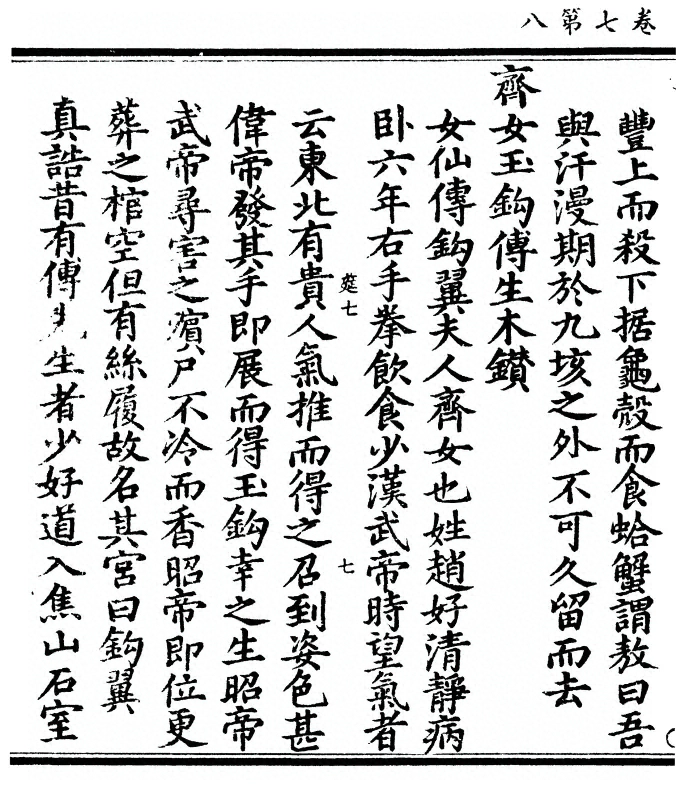 卷七第八
豐上而殺下据龜殼而食蛤蟹謂敖曰吾
與汗漫期於九垓之外不可久留而去
齊女玉鈎傅生木鑚
女仙傳鈎翼夫人齊女也姓趙好清靜病
卧六年右手拳飲食少漢武帝時望氣者
筵七 七
云東北有貴人氣推而得之召到姿色甚
偉帝發其手即展而得玉鈎幸之生昭帝
武帝尋害之殯尸不冷而香昭帝即位更
葬之棺空但有絲履故名其宮曰鈎翼
真誥昔有傅先生者少好道入焦山石室